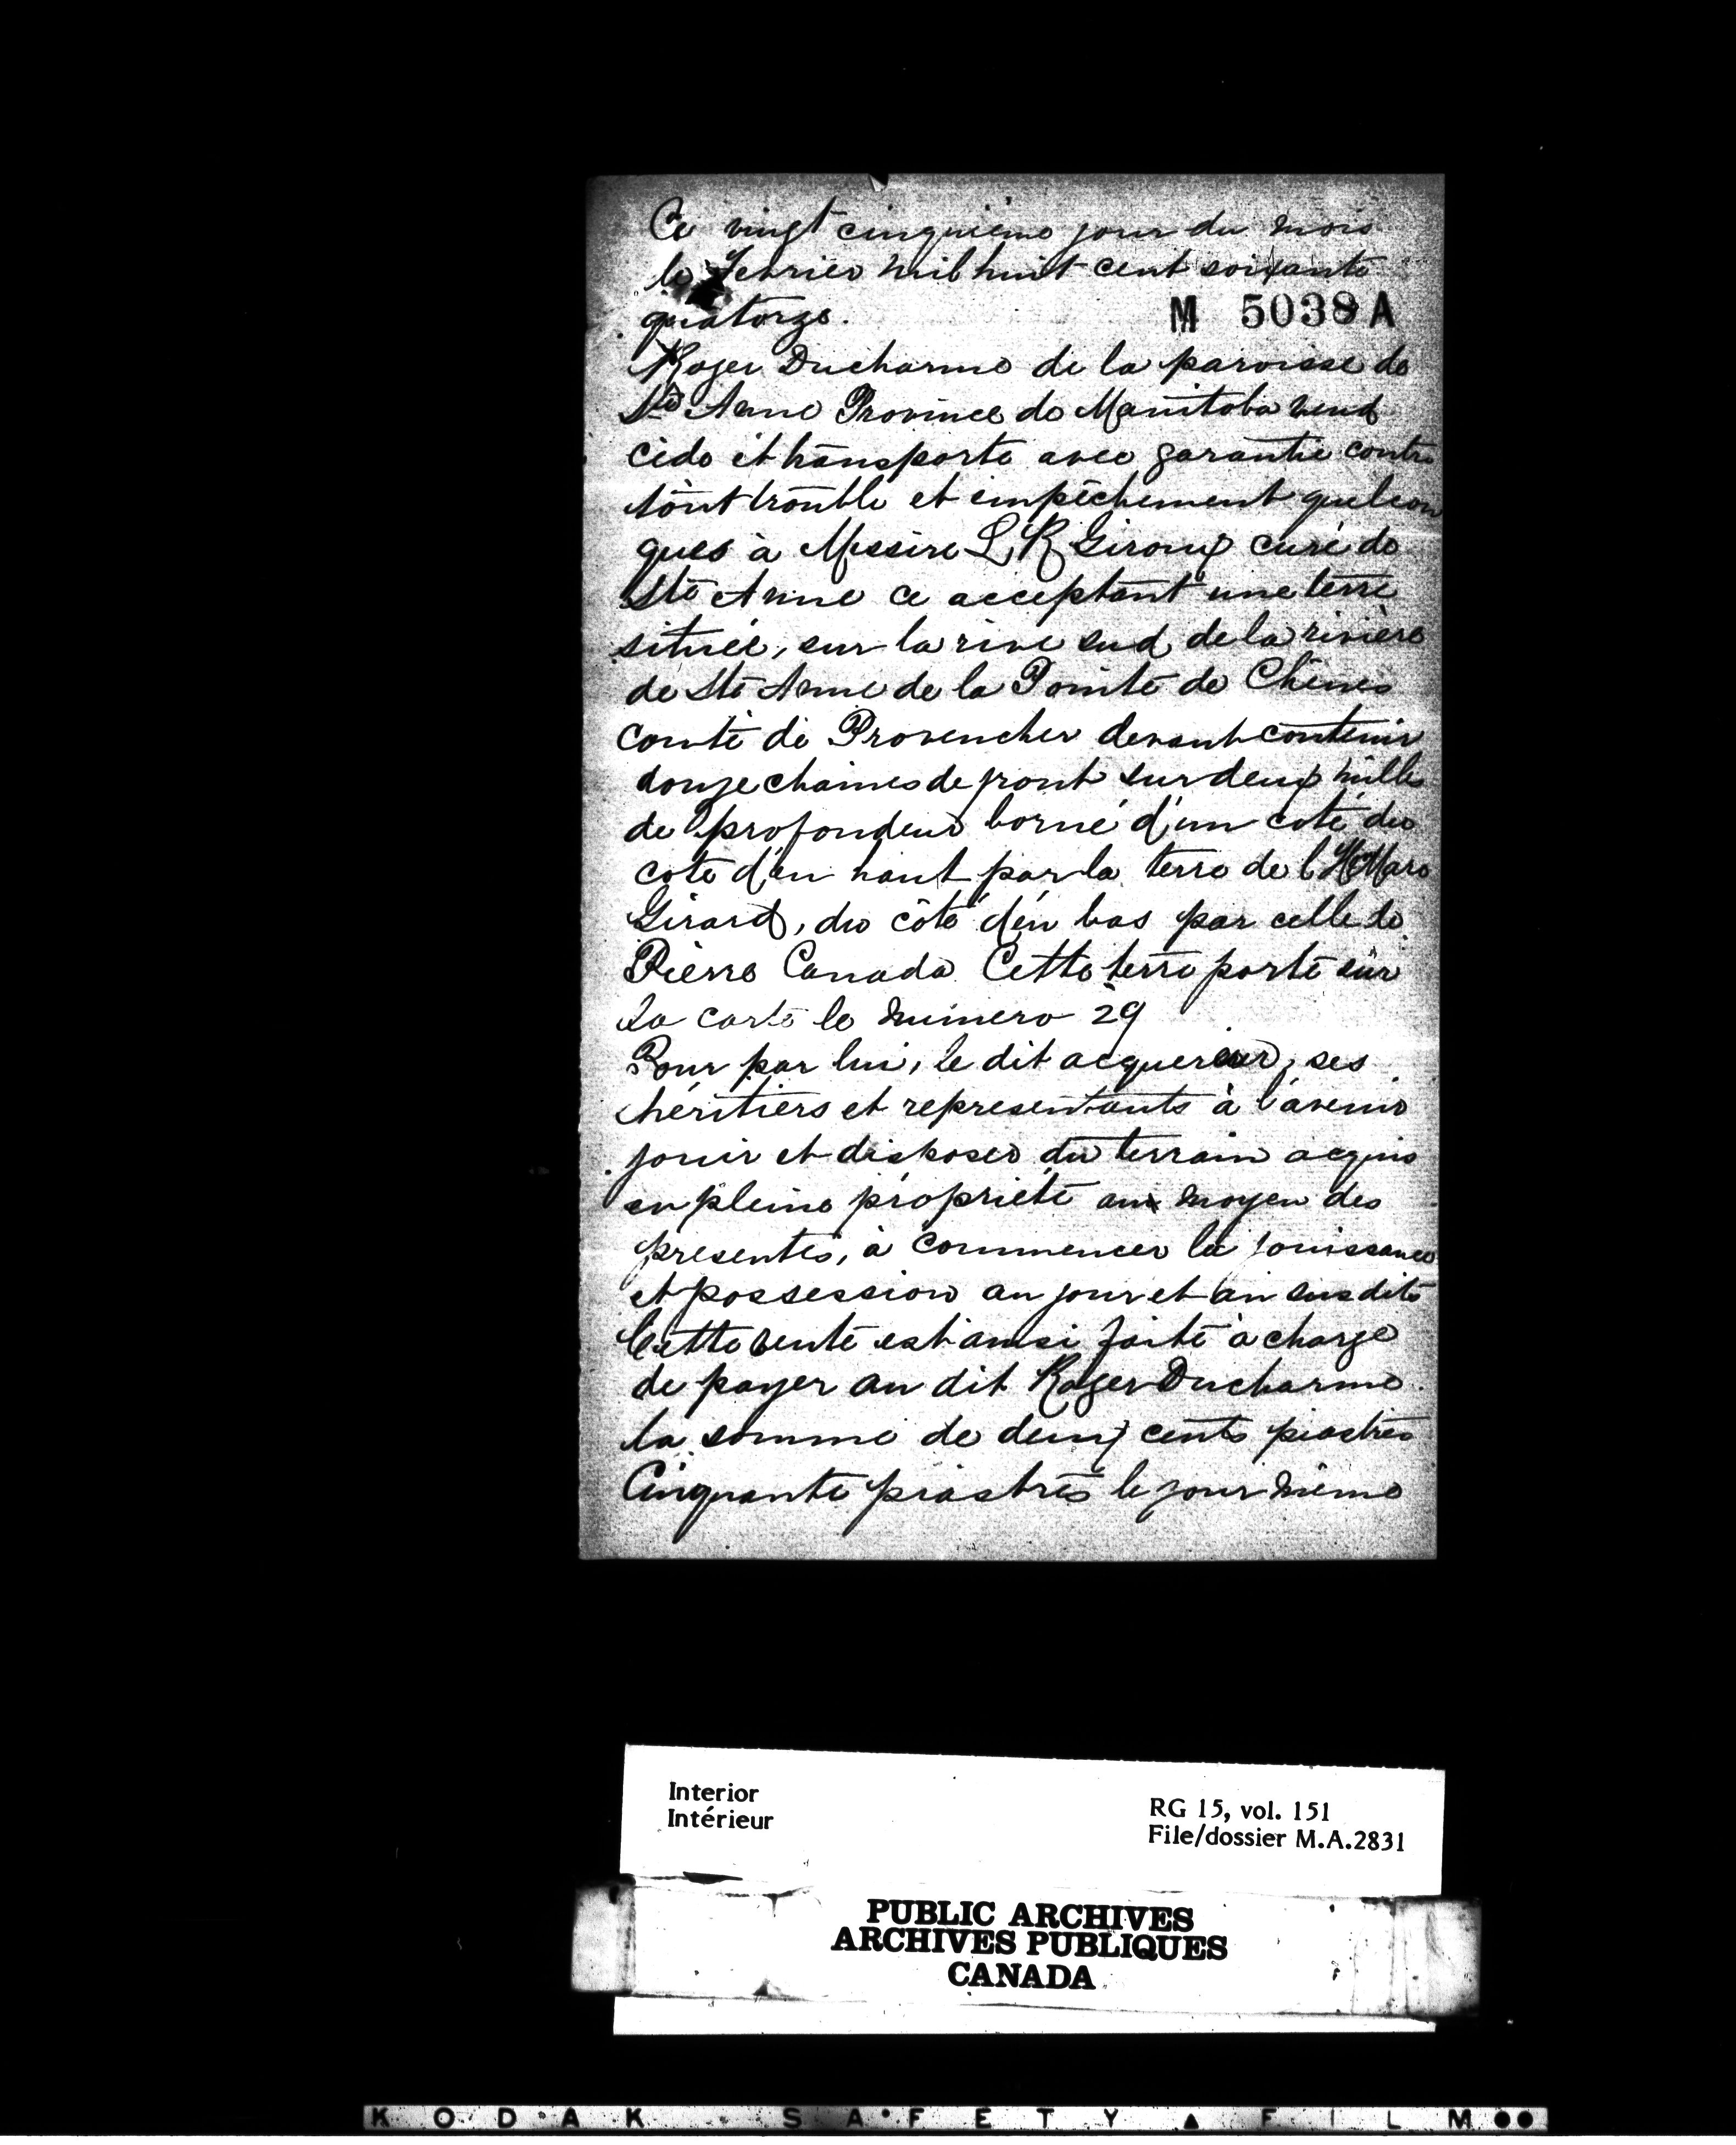 Ce vingt cinquième jour du mois
de Fevrier mil huit cent soixante
quatorze.
M 5038 A
Roger Ducharme de la paroisse de
Ste Anne Province de Manitoba vend
cède et transporte avec garantie contre
tout trouble et empêchement quelcon
ques à Messire L, R, Giroux curé de
Ste Anne ce acceptant une terre
située, sur la rive sud de la rivière
de Ste Anne de la Pointe de Chênes
comté de Provencher devant contenir
douze chaines de front sur deux milles
de profondeur borné d'un coté du
coté d'en haut par la terre de l'H Marc
Girard, du côté d'en bas par celle de
Pierre Canada Cette terre porte sur
la carte le numero 29
Pour par lui, le dit acquereur, ses
héritiers et representants à l'avenir
jouir et disposer du terrain acquis
en pleine propriété au moyen des
presentes, à commencer la jouissance
et possession au jour et an susdits
Cette vente est ainsi faite à charge
de payer au dit Roger Ducharme
la somme de deux cents piastres
Cinquante piastres le jour même
Interior
Intérieur
RG 15, vol. 151
File/dossier M.A.2831
PUBLIC ARCHIVES
ARCHIVES PUBLIQUES
CANADA
KODAK SAFETY FILM